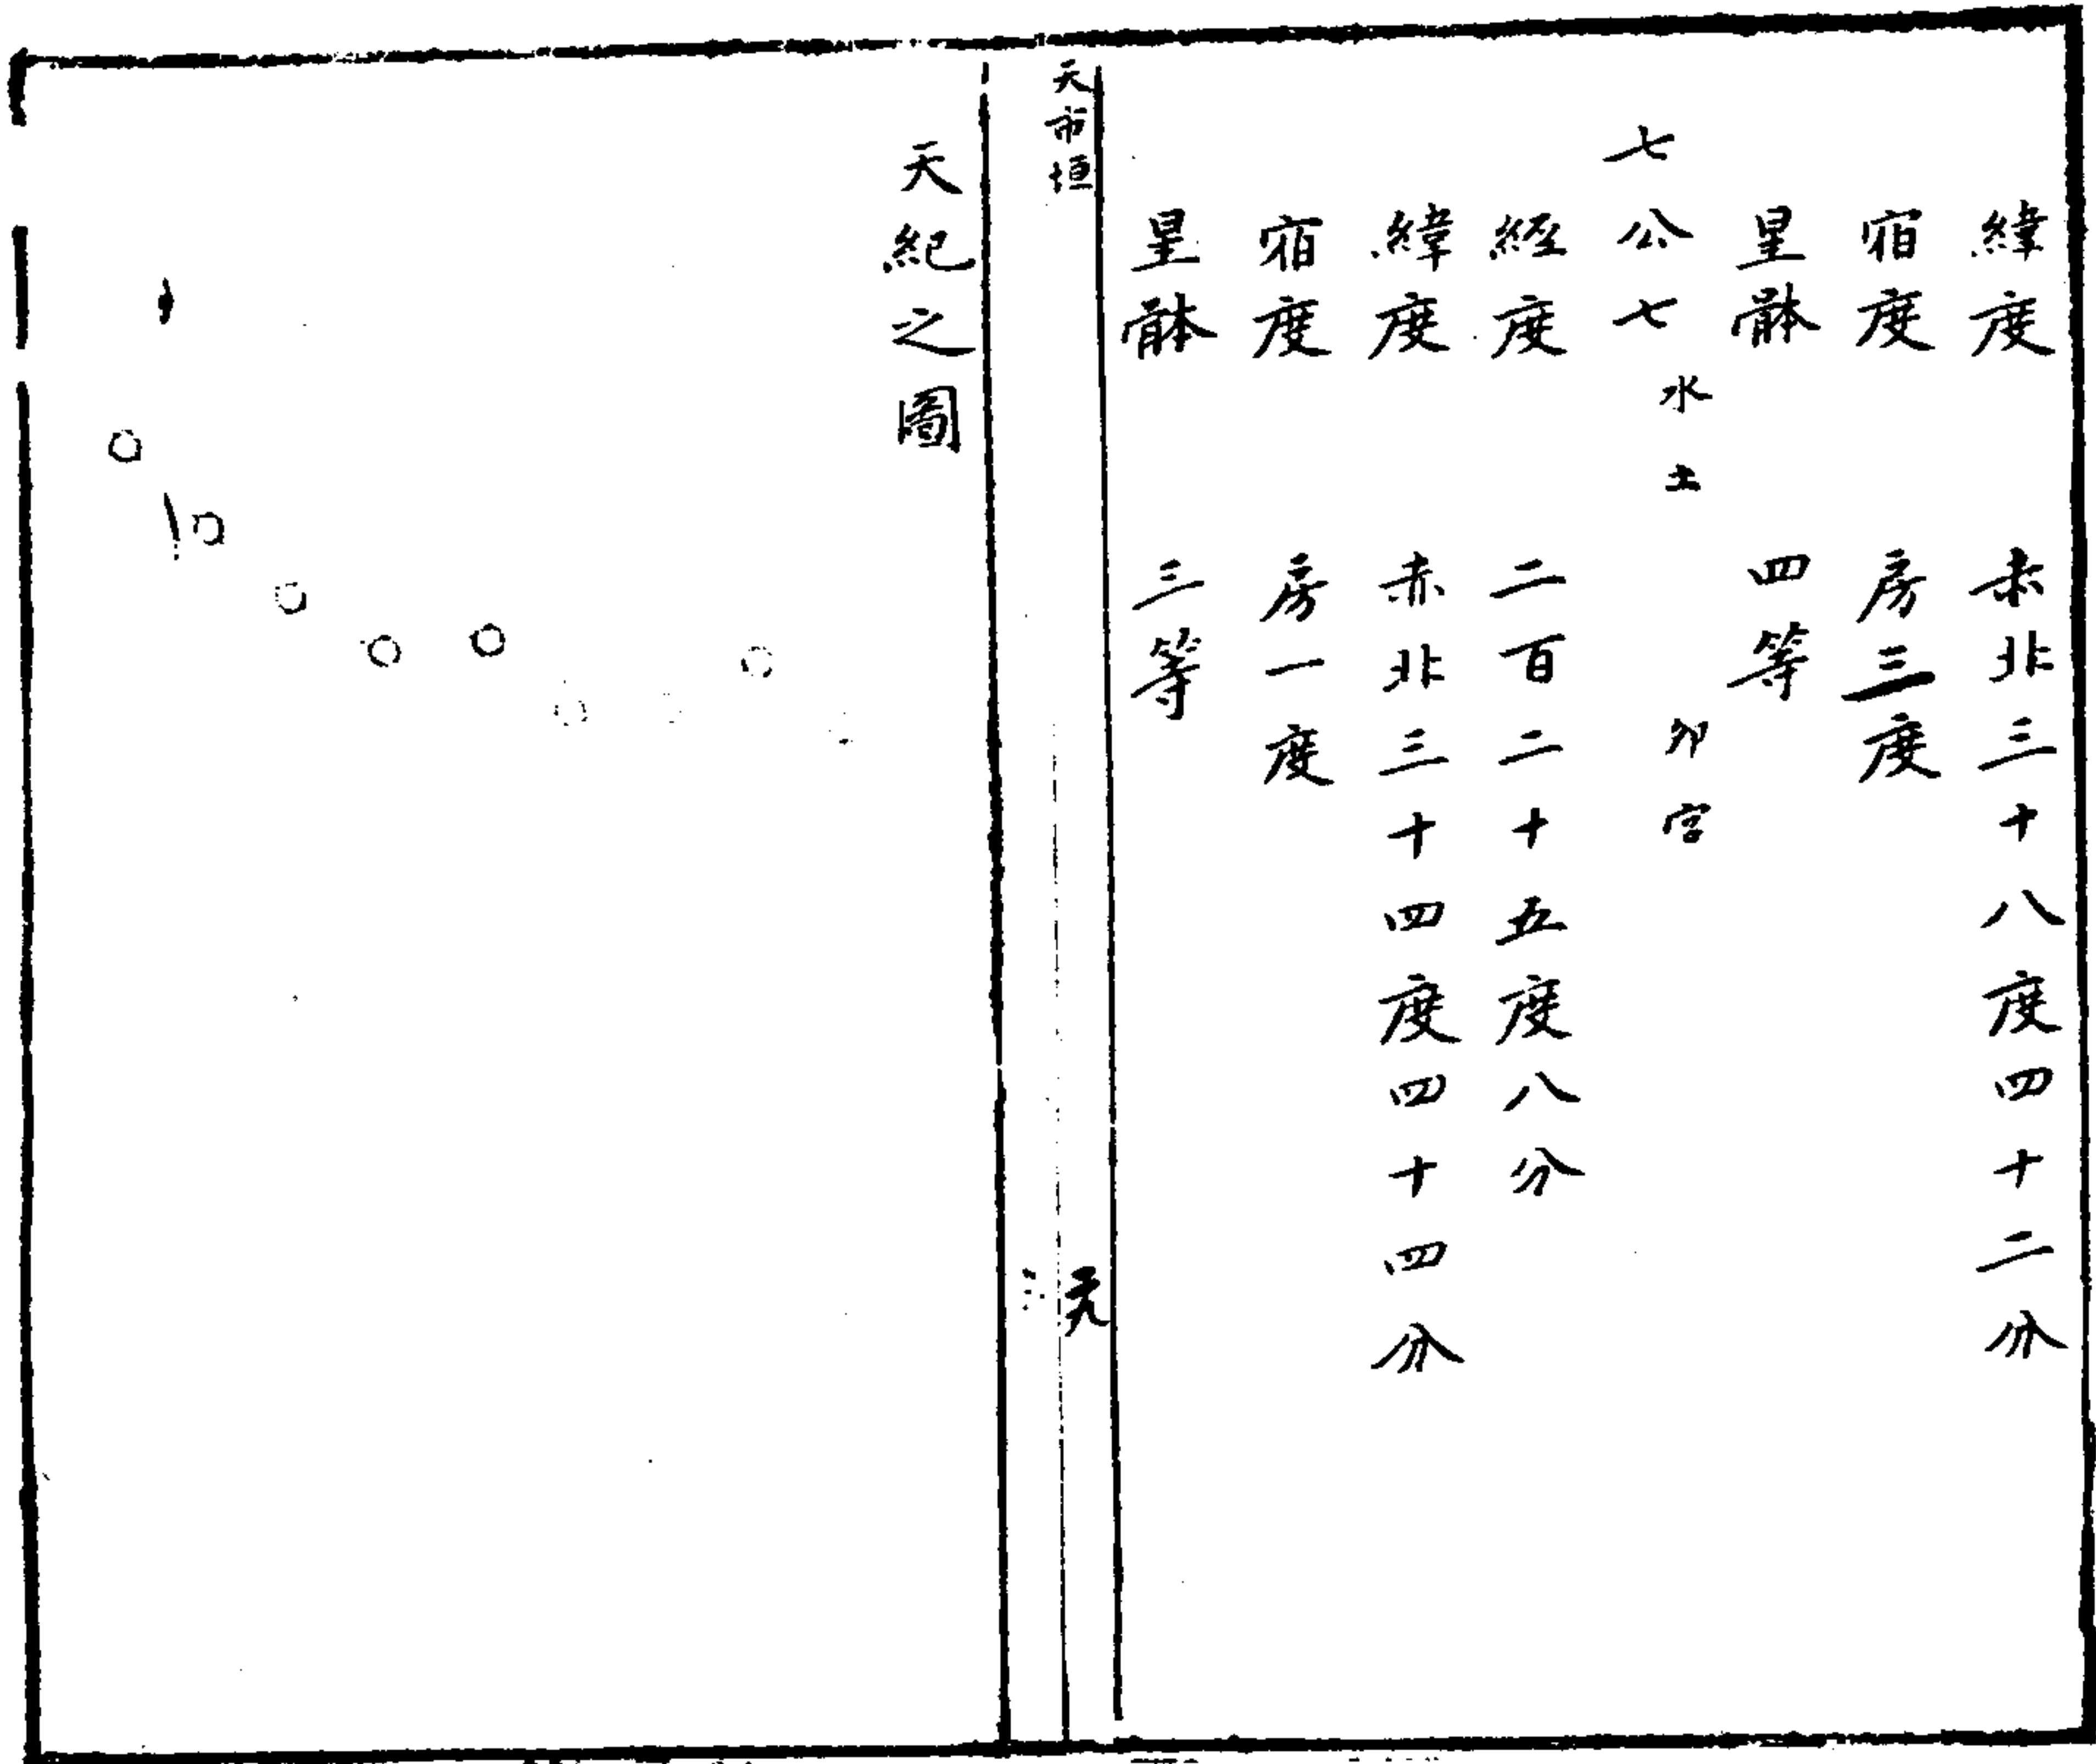 緯度　赤北三十八度四十二分
宿度　房三度
星骵　四等
七公七　水土　卯宮
經度　二百二十五度八分
緯度　赤北三十四度四十四分
宿度　房一度
星骵　三等
天市垣
天紀之圖